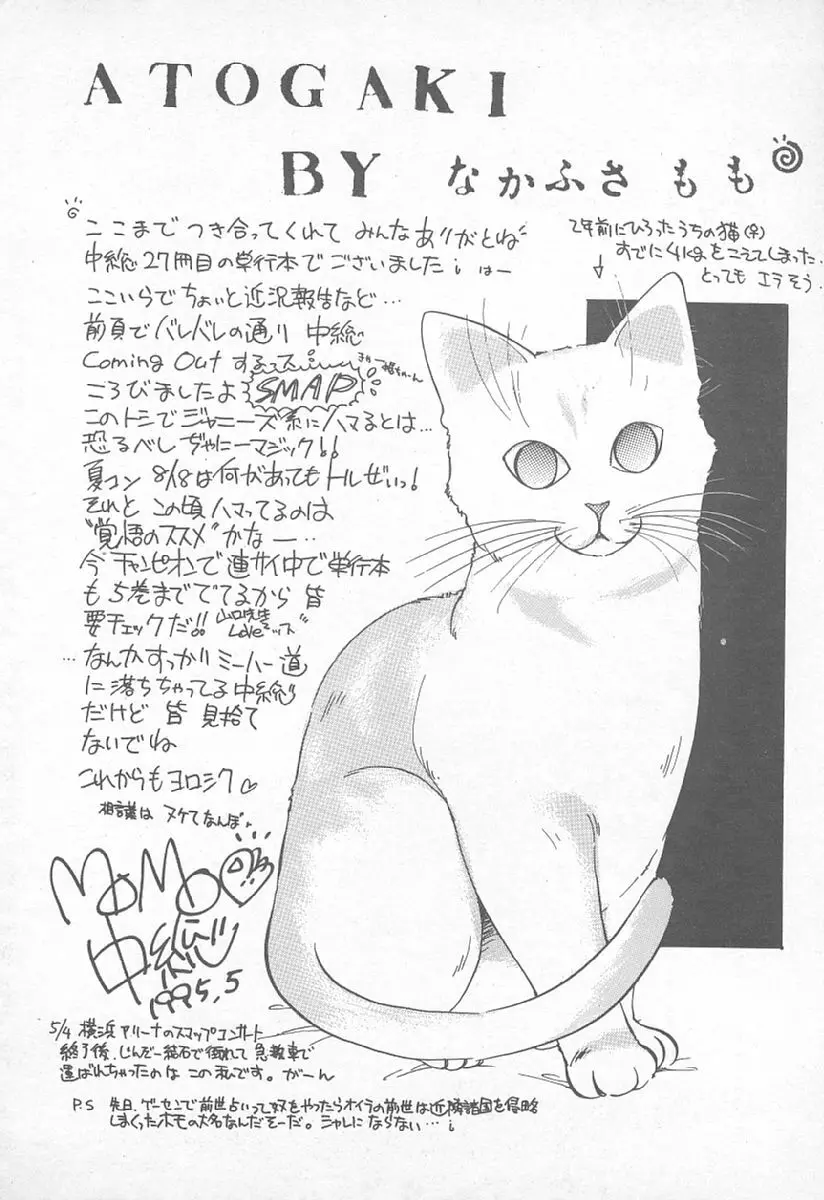 ATOGAKI
BY なかふさ もも
ここまで つき合ってくれて みんなありがとね
中総27冊目の単行本でございました
ここいらでちょいと近況報告など…
前頁でバレバレの通り 中総
Coming Out
ころびましたよ SMAP
このトシでジャニーズ系にハマるとは…
恐るべし ぢゃにーマジック!!
夏コン 8/18は何があってもトルぜいっ!
それと この頃ハマってるのは
“覚悟のススメ”かなー…
今チャンピオンで連サイ中で単行本
も5巻まででてるから 皆
要チェックだ!! 山口先生Loveッス
…なんかすっかりミーハー道
に落ちちゃってる中総
だけど 皆 見捨て
ないでね
これからもヨロシク♡
相談は ヌケてなんぼ
MOMO
中総
1995.5
2年前にひろったうちの猫(♀)
すでに4kgをこえてしまった.
とっても エラそう.
5/4 横浜アリーナのスマップコンサート
終了後、じんぞー結石で倒れて 救急車で
運ばれちゃったのは この私です。がーん
P.S 先日.ゲーセンで前世占いって奴をやったらオイラの前世は近隣諸国を侵略
しまくったホモの大名なんだそーだ。シャレにならない…